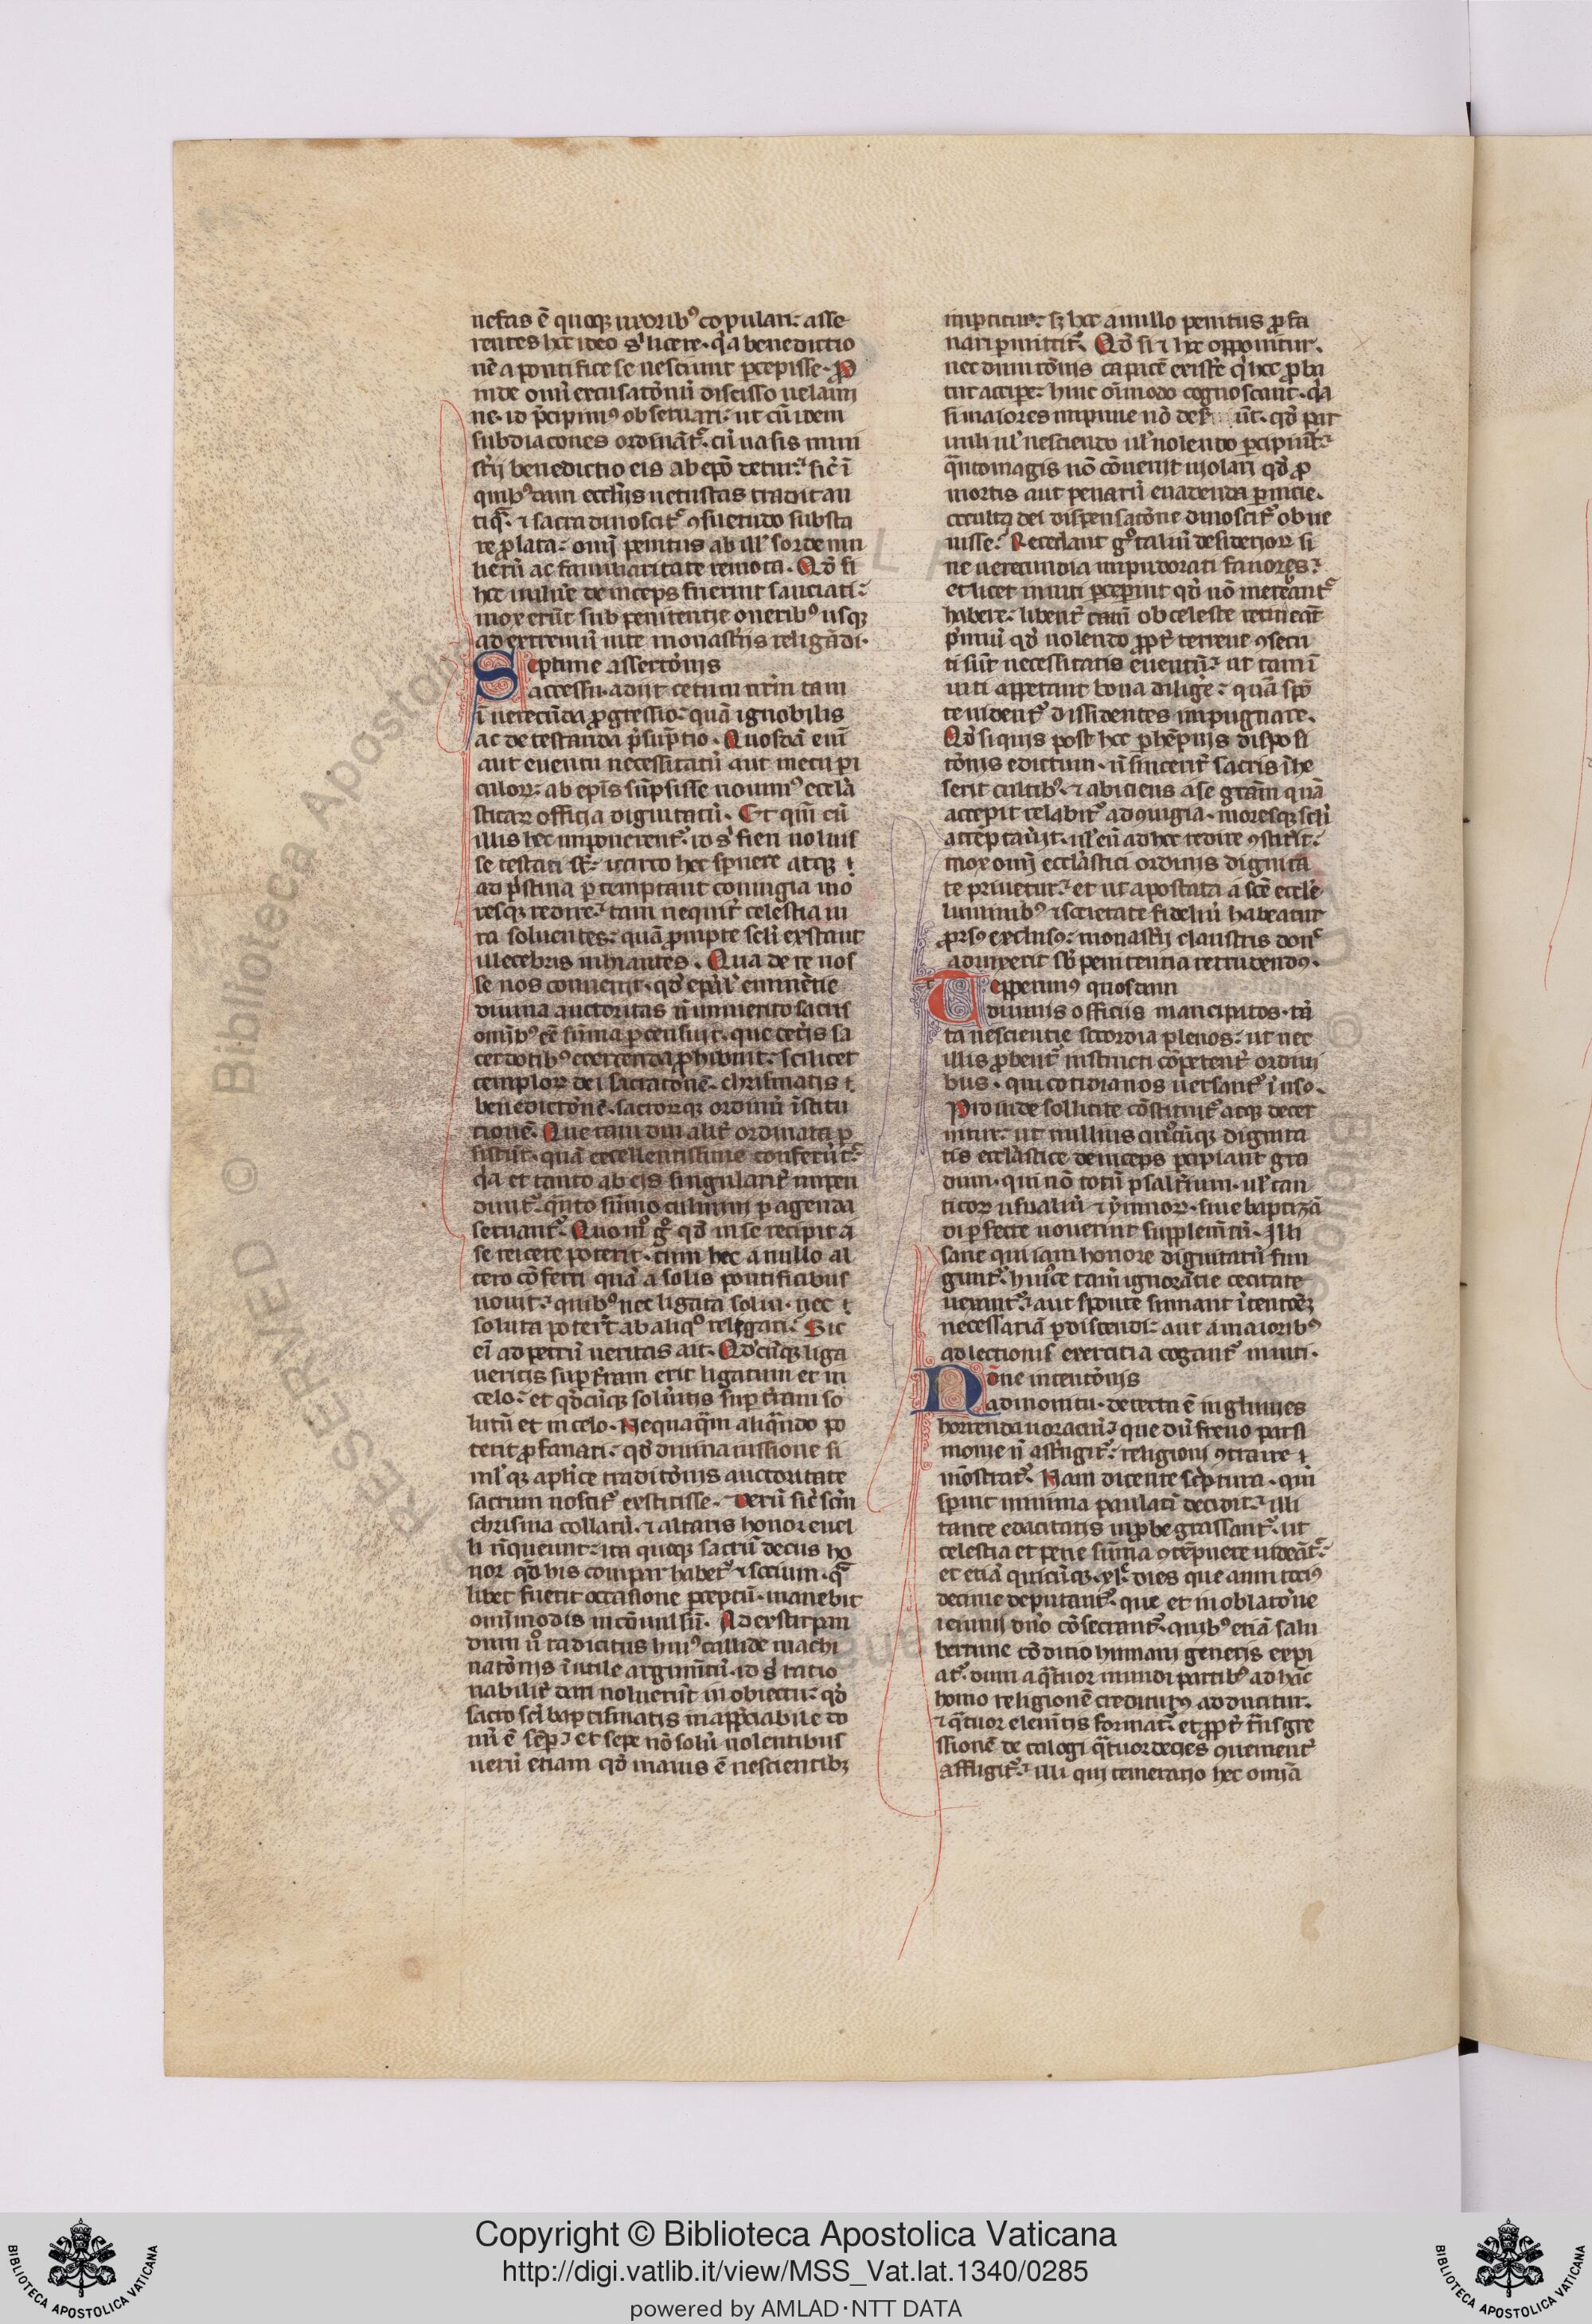 nefas ē quoqꝫ uxoribꝰ copulari: asse
rentes hec ideo sͥ licere· qͥa benedictio
nē a pontifice se nesciunt ꝑcepisse· ꝓ
inde omni excusatōnū discisso uelami
ne· id p̄cipimꝰ obseruari: ut cū idem
subdiacones ordināt᷑· cū uasis mini
sterij benedictio eis ab epō detur: sic̄ ī
quibꝰdam eccl̄ijs uetustas tradit an
tiqͣ· ⁊ sacra dinoscit᷑ ꝯsuetudo substa
re ꝓlata: omī penitus ab ill' sorde mu
lierū ac familiaritate remota· Qd̄ si
hec uuln̄e deinceps fuerint sauciati:
mox erūt sub penitentie oneribꝰ usqꝫ
ad extremū uite monast̄ijs religādi·
Septime assertōnis
accessu· adiit cetum nr̄m tam
ī uerecūda ꝓgressio: quā ignobilis
ac detestanda p̄sūptio· Quosdā eni
aut euentu necessitatū aut metu pi
culoꝝ: ab ep̄is sūpsisse nouimꝰ eccl̄a
sticaꝝ officia dignitatū· Et qm̄ cū
illis hec imponerent᷑· id sͥ fieri noluis
se testati st̄: iccirco hec spnere atqꝫ ⁊
ad p̄stina ꝑtemptant coniugia mo
resqꝫ redire: tam nequit̄ celestia iu
ra soluentes: quā ꝓmpte scl̄i exstant
illecebris inhiantes· Qua de re nos
se nos conuenit· qd̄ ep̄al' eminētie
diuina auctoritas n̄ immerito sacris
omībꝰ eē sūma ꝑcensuit· que cet̄is sa
cerdotibꝰ coercenda ꝓhibuit: scilicet
temploꝝ dei sacratōnē· chrismatis ⁊
benedictōnē· sacroꝝqꝫ ordinū īstitu
tionē· Que tam diu alit̄ ordinata ꝑ
sistūt· quā excellentissime conferūt᷑:
qͥa et tanto ab eis singularit̄ impen
dunt᷑· qͣnto sūmo culmini ꝑagenda
seruant᷑· Quomō gͦ qd̄ in se recipit a
se reicere poterit· cum hec a nullo al
tero cōferri quā a solis pontificibus
nouit: quibꝰ nec ligata solui· nec ⁊
soluta poter̄t ab aliqͦ religari: Sic
eī ad petrū ueritas ait· Qd̄cūqꝫ liga
ueritis sup t̄ram erit ligatum et in
celo: et qd̄cūqꝫ solūitis sup t̄ram so
lutū et in celo· Nequaqͣm aliqͣndo po
terit ꝓfanari: qd̄ diuina iussione si
ml'qꝫ apl'ice traditōnis auctoritate
sacrum noscit᷑ exstitisse· Verū sic̄ scm̄
chrisma collatū· ⁊ altaris honor euel
li nequeunt: ita quoqꝫ sacrū decus ho
nor qd̄ his compar habet᷑ ⁊ socium· qͣ
libet fuerit occasione ꝑceptū· manebit
omīmodis inconuulsū· Ad exstirpan
dum uͦ radicitus huiꝰ callide machi
natōnis īutile argumtū· id sͥ ratio
nabilit̄ dari uoluerūt in obiectu: qd̄
sacro scī baptismatis inapp̄ciabile do
nū ē semp̄: et sepe nō solū uolentibus
uerū etiam qd̄ maius ē nescientibꝫ
imꝑtitur: sꝫ hec a nullo penitus ꝓfa
nari ꝑmittit᷑· Qd̄ si ⁊ hec opponitur·
nec dum rōnis capacē existe᷑ qͥ hec ꝓba
tur accipe: hinc oīmodo cognoscant· qͥa
si maiores impune nō ūt· qd̄ par
uuli ul' nesciendo ul' nolendo ꝑcipiūt:
qͣntomagis nō cōuenit uiolari qd̄ ꝓ
mortis aut penarū euadenda ꝑnicie·
occulta dei dispensatōne dinoscit᷑ obue
nisse: Recedant gͦ taliū desiderioꝝ si
ne uerecundia impudorati fauores:
et licet inuiti ꝑceperint qd̄ nō mereānt᷑
habere: libent̄ tam̄ ob celeste retineāt
p̄miū qd̄ nolendo ꝓpt̄ terrene ꝯsecu
ti sūt necessitatis euentū: ut tam ī
uiti appetant bona dilige᷑: quā spō
te uident᷑ dissidentes impugnare·
Qd̄ si quis post hec ꝓhēnis disposi
tōnis edictum· n̄ sincerit̄ sacris īhe
serit cultibꝰ· ⁊ abiciens a se gr̄am quā
accepit relabit᷑ ad ꝯiugia· moresqꝫ scl̄i
attēptau'it· ul' eū ad hec redire ꝯstit'it:
mox omī eccl̄astici ordinis dignita
te priuetur: et ut apostata a scē eccl̄e
luminibꝰ ⁊ societate fideliū habeatur
ꝓrsꝰ exclusꝰ: monast̄ij claustris donͨ
aduixerit sb̄ penitentia retrudendꝰ·
Repperimꝰ quosdam
diuinis officijs mancipatos· tā
ta nescientie socordia plenos: ut nec
illis ꝓbent᷑ instructi cōpetent̄ ordini
bus· qui cotidianos uersant᷑ ī uso·
Proinde sollicite cōstituit᷑ atqꝫ decer
nitur: ut nullius cuiꝰcūqꝫ dignita
tis eccl̄astice deinceps ꝑcipiant gra
dum· qui nō totū psalt̄ium· ul' can
ticoꝝ usualiū ⁊ ymnoꝝ· siue baptizā
di ꝑfecte nouerint supplem̄tū· Illi
sane qui iam honore dignitatū fun
gunt᷑· huiꝰce tam̄ ignorātie cecitate
uexant᷑: aut sponte sumant ītentōeꝫ
necessariā ꝑdiscendi: aut a maioribꝰ
ad lectionis exercitia cogant᷑ inuiti·
None intentōnis
admonitu· detecta ē ingluuies
horrenda uoraciū: que dū freno parsi
monie n̄ astringit᷑: religioni ꝯtraire ⁊
mōstrat᷑· Nam dicente scͥptura· qui
spnit minima paulatī decidit: illi
tante edacitatis imꝓbe grassant᷑· ut
celestia et pene sūma ꝯtēpnere uideāt᷑:
et etiā quicūqꝫ· xl· dies que anni tociꝰ
decime deputant᷑· que et in oblatōne
ieiunij dn̄o cōsecrant᷑· quibꝰ etiā salu
berrime cōditio humani generis expi
at᷑· dum a qͣtuor mundi partibꝰ ad hāc
homo religionē crediturꝰ adducitur·
⁊ qͣtuor elem̄tis format᷑· et ꝓpt̄ t̄nsgre
ssionē decalogi qͣtuordecies ꝯuenient̄
affligit᷑: illi qui temerario hec omīa